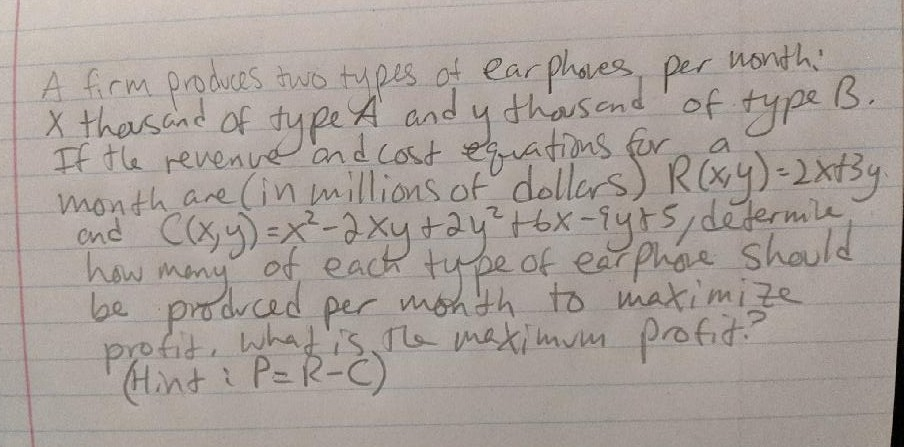 A firm produces two types of earphones per month:
x thousand of type A and y thousand of type B.
If the revenue and cost equations for a
month are (in millions of dollars) R(x,y)=2x+3y
and C(x,y)=x²-2xy+2y²+6x-9y+5, determine
how many of each type of earphone should
be produced per month to maximize
profit. What is the maximum profit?
(Hint: P=R-C)